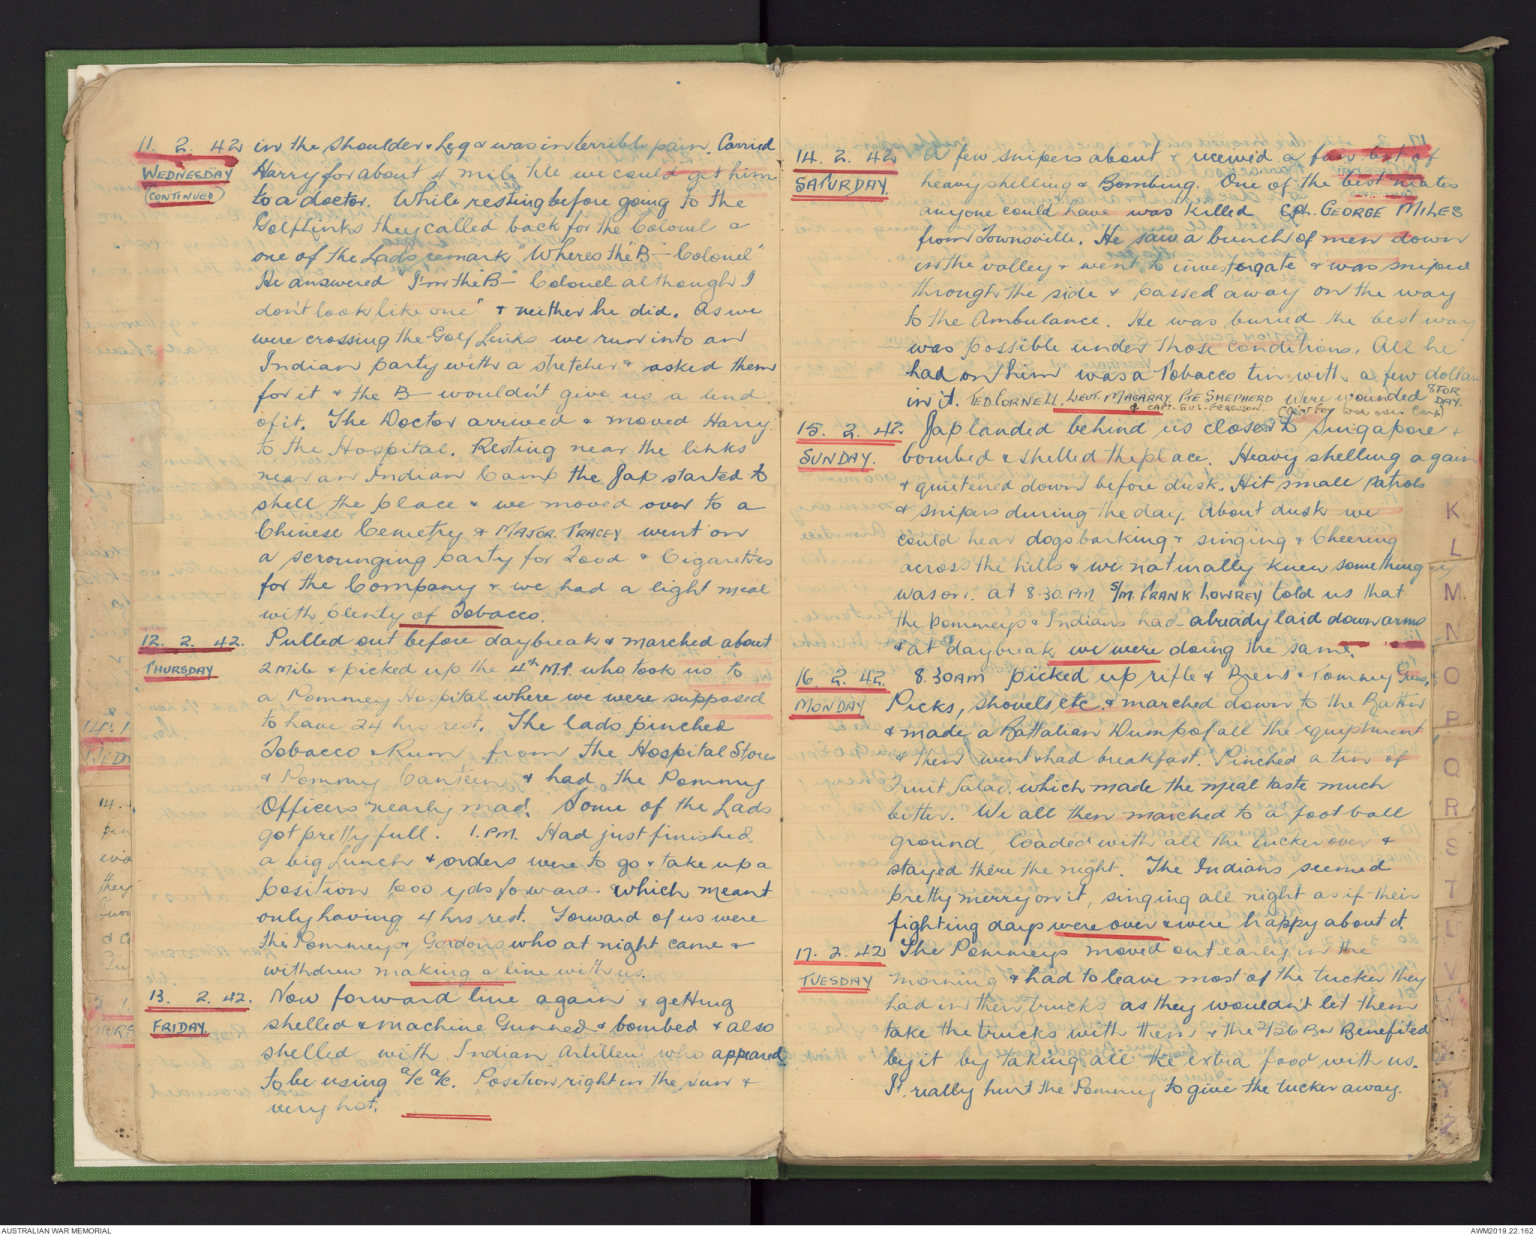 11. 2. 42 in the shoulder & Leg & was in terrible pain. Carried
WEDNESDAY Harry for about 4 mile till we could get him
(CONTINUED) to a doctor. While resting before going to the
Golf Links they called back for the Colonel &
one of the Lads remark "Wheres the "B— Colonel"
He answered "I'm the "B—" Colonel although I
don't look like one" & neither he did. As we
were crossing the Golf Links we run into an
Indian party with a stretcher & asked them
for it & the B— wouldn't give us a lend
of it. The Doctor arrived & moved Harry
to the Hospital. Resting near the links
near an Indian Camp the Jap started to
shell the place & we moved over to a
Chinese Cemetry & MAJOR. TRACEY went on
a scrounging party for Food & Cigarettes
for the Company & we had a light meal
with plenty of Tobacco.
12. 2. 42. Pulled out before daybreak & marched about
THURSDAY 2 mile & picked up the 4th M.T. who took us to
a Pommey Hospital where we were supposed
to have 24 hrs rest. The lads pinched
Tobacco & Rum from the Hospital Stores
& Pommy Canteen & had the Pommy
Officers nearly mad. Some of the Lads
got pretty full. 1. P.M. Had just finished
a big Lunch & orders were to go & take up a
position 1000 yds forward which meant
only having 4 hrs rest. Forward of us were
the Pommeys, Gordons who at night came &
withdrew making a line with us.
13. 2. 42. Now forward line again & getting
FRIDAY shelled & Machine Gunned & bombed & also
shelled with Indian Artillery who appeared
to be using a/c a/c. Position right in the sun &
very hot.
14. 2. 42 A few snipers about & receiv'd a fair bit of
SATURDAY heavy shelling & Bombing. One of the best mates
anyone could have was killed CPL. GEORGE MILES
from Townsville. He saw a bunch of men down
in the valley & went to investergate & was sniped
through the side & passed away on the way
to the Ambulance. He was buried the best way
was possible under those conditions. All he
had on him was a Tobacco tin with a few dollars
in it. TED CORNELL, LIEUT. MAGARRY, PTE SHEPHERD were wounded 8 FOR DAY.
& CAPT. GUS. FERGUSON.
15. 2. 42. Jap landed behind us closer to Singapore &
SUNDAY. bombed & shelled the place. Heavy shelling again
& quietened down before dusk. Hit small Patrols
& snipers during the day. About dusk we
could hear dogs barking & singing & Cheering
across the hills & we naturally knew something
was on. at 8.30. P.M S/M. FRANK LOWREY told us that
the Pommeys & Indians had already laid down arms
& at daybreak we were doing the same.
16. 2. 42. 8.30 AM picked up rifle & Brens & Tommy Guns,
MONDAY Picks, shovels etc & marched down to the
& made a Battalian Dump of all the equiptment
& then went & had breakfast. Pinched a tin of
Fruit Salad which made the meal taste much
better. We all then marched to a football
ground, loaded with all the tucker over &
stayed there the night. The Indians seemed
pretty merry on it, singing all night as if their
fighting days were over & were happy about it.
17. 2. 42 The Pommeys moved out early in the
TUESDAY morning & had to leave most of the tucker they
had in their trucks as they wouldn't let them
take the trucks with them & the 2/26 Bn Benefited
by it by taking all the extra food with us.
It really hurt the Pommy to give the tucker away.
K
L
M
N
O
P
Q
R
S
T
U
V
Y
Z
AUSTRALIAN WAR MEMORIAL
AWM2019.22.162